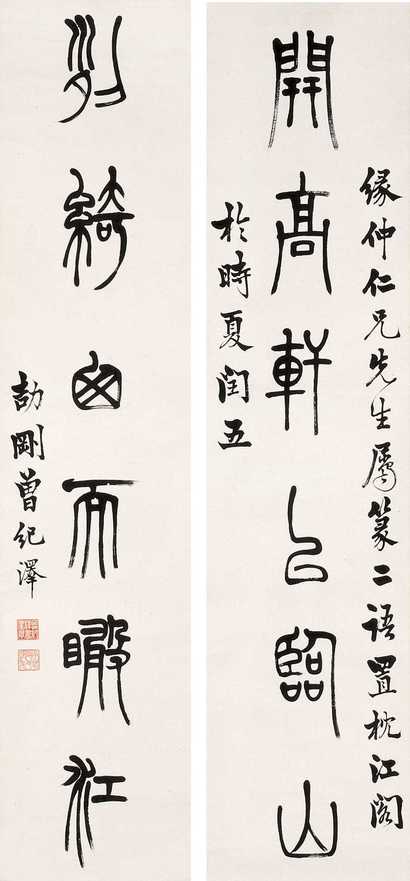 緣仲仁兄先生屬篆二語置枕江閣
開高軒㠯臨山
於時夏閏五
列綺囪而瞰江
劼剛曾紀澤